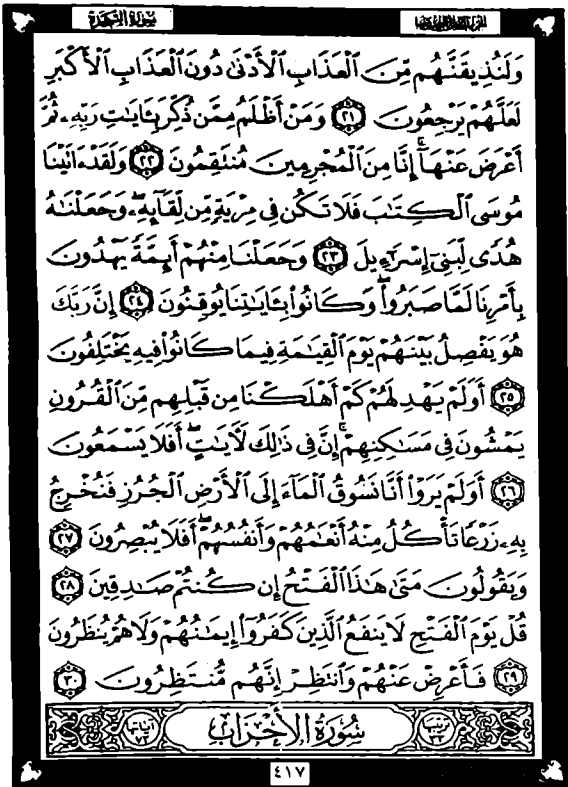 سُورَةُ السَّجْدَةِ
وَلَنُذِيقَنَّهُم مِّنَ ٱلْعَذَابِ ٱلْأَدْنَىٰ دُونَ ٱلْعَذَابِ ٱلْأَكْبَرِ
لَعَلَّهُمْ يَرْجِعُونَ ٢١ وَمَنْ أَظْلَمُ مِمَّن ذُكِّرَ بِـَٔايَٰتِ رَبِّهِۦ ثُمَّ
أَعْرَضَ عَنْهَآ ۚ إِنَّا مِنَ ٱلْمُجْرِمِينَ مُنتَقِمُونَ ٢٢ وَلَقَدْ ءَاتَيْنَا
مُوسَى ٱلْكِتَٰبَ فَلَا تَكُن فِى مِرْيَةٍ مِّن لِّقَآئِهِۦ ۖ وَجَعَلْنَٰهُ
هُدًى لِّبَنِىٓ إِسْرَٰٓءِيلَ ٢٣ وَجَعَلْنَا مِنْهُمْ أَئِمَّةً يَهْدُونَ
بِأَمْرِنَا لَمَّا صَبَرُوا۟ ۖ وَكَانُوا۟ بِـَٔايَٰتِنَا يُوقِنُونَ ٢٤ إِنَّ رَبَّكَ
هُوَ يَفْصِلُ بَيْنَهُمْ يَوْمَ ٱلْقِيَٰمَةِ فِيمَا كَانُوا۟ فِيهِ يَخْتَلِفُونَ
٢٥ أَوَلَمْ يَهْدِ لَهُمْ كَمْ أَهْلَكْنَا مِن قَبْلِهِم مِّنَ ٱلْقُرُونِ
يَمْشُونَ فِى مَسَٰكِنِهِمْ ۚ إِنَّ فِى ذَٰلِكَ لَـَٔايَٰتٍ ۖ أَفَلَا يَسْمَعُونَ
٢٦ أَوَلَمْ يَرَوْا۟ أَنَّا نَسُوقُ ٱلْمَآءَ إِلَى ٱلْأَرْضِ ٱلْجُرُزِ فَنُخْرِجُ
بِهِۦ زَرْعًا تَأْكُلُ مِنْهُ أَنْعَٰمُهُمْ وَأَنفُسُهُمْ ۖ أَفَلَا يُبْصِرُونَ ٢٧
وَيَقُولُونَ مَتَىٰ هَٰذَا ٱلْفَتْحُ إِن كُنتُمْ صَٰدِقِينَ ٢٨
قُلْ يَوْمَ ٱلْفَتْحِ لَا يَنفَعُ ٱلَّذِينَ كَفَرُوٓا۟ إِيمَٰنُهُمْ وَلَا هُمْ يُنظَرُونَ
٢٩ فَأَعْرِضْ عَنْهُمْ وَٱنتَظِرْ إِنَّهُم مُّنتَظِرُونَ ٣٠
ترتيبها ٣٣ سُورَةُ الأَحْزَابِ آياتها ٧٣
٤١٧